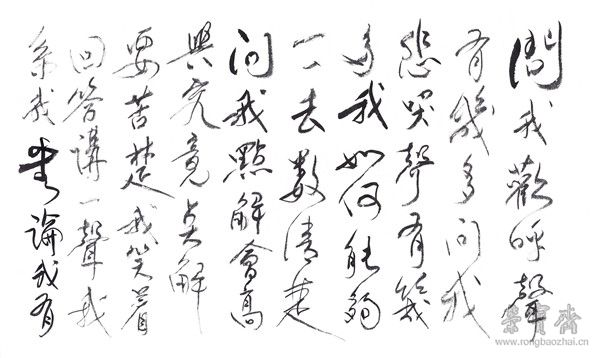 問我歡呼聲
有幾多問我
悲哭聲有幾
多我如何能夠
一一去數清楚
問我點解會高
興究竟点解
要苦楚我笑着
回答講一聲我
系我無論我有
榮寶齋
www.rongbaozhai.cn